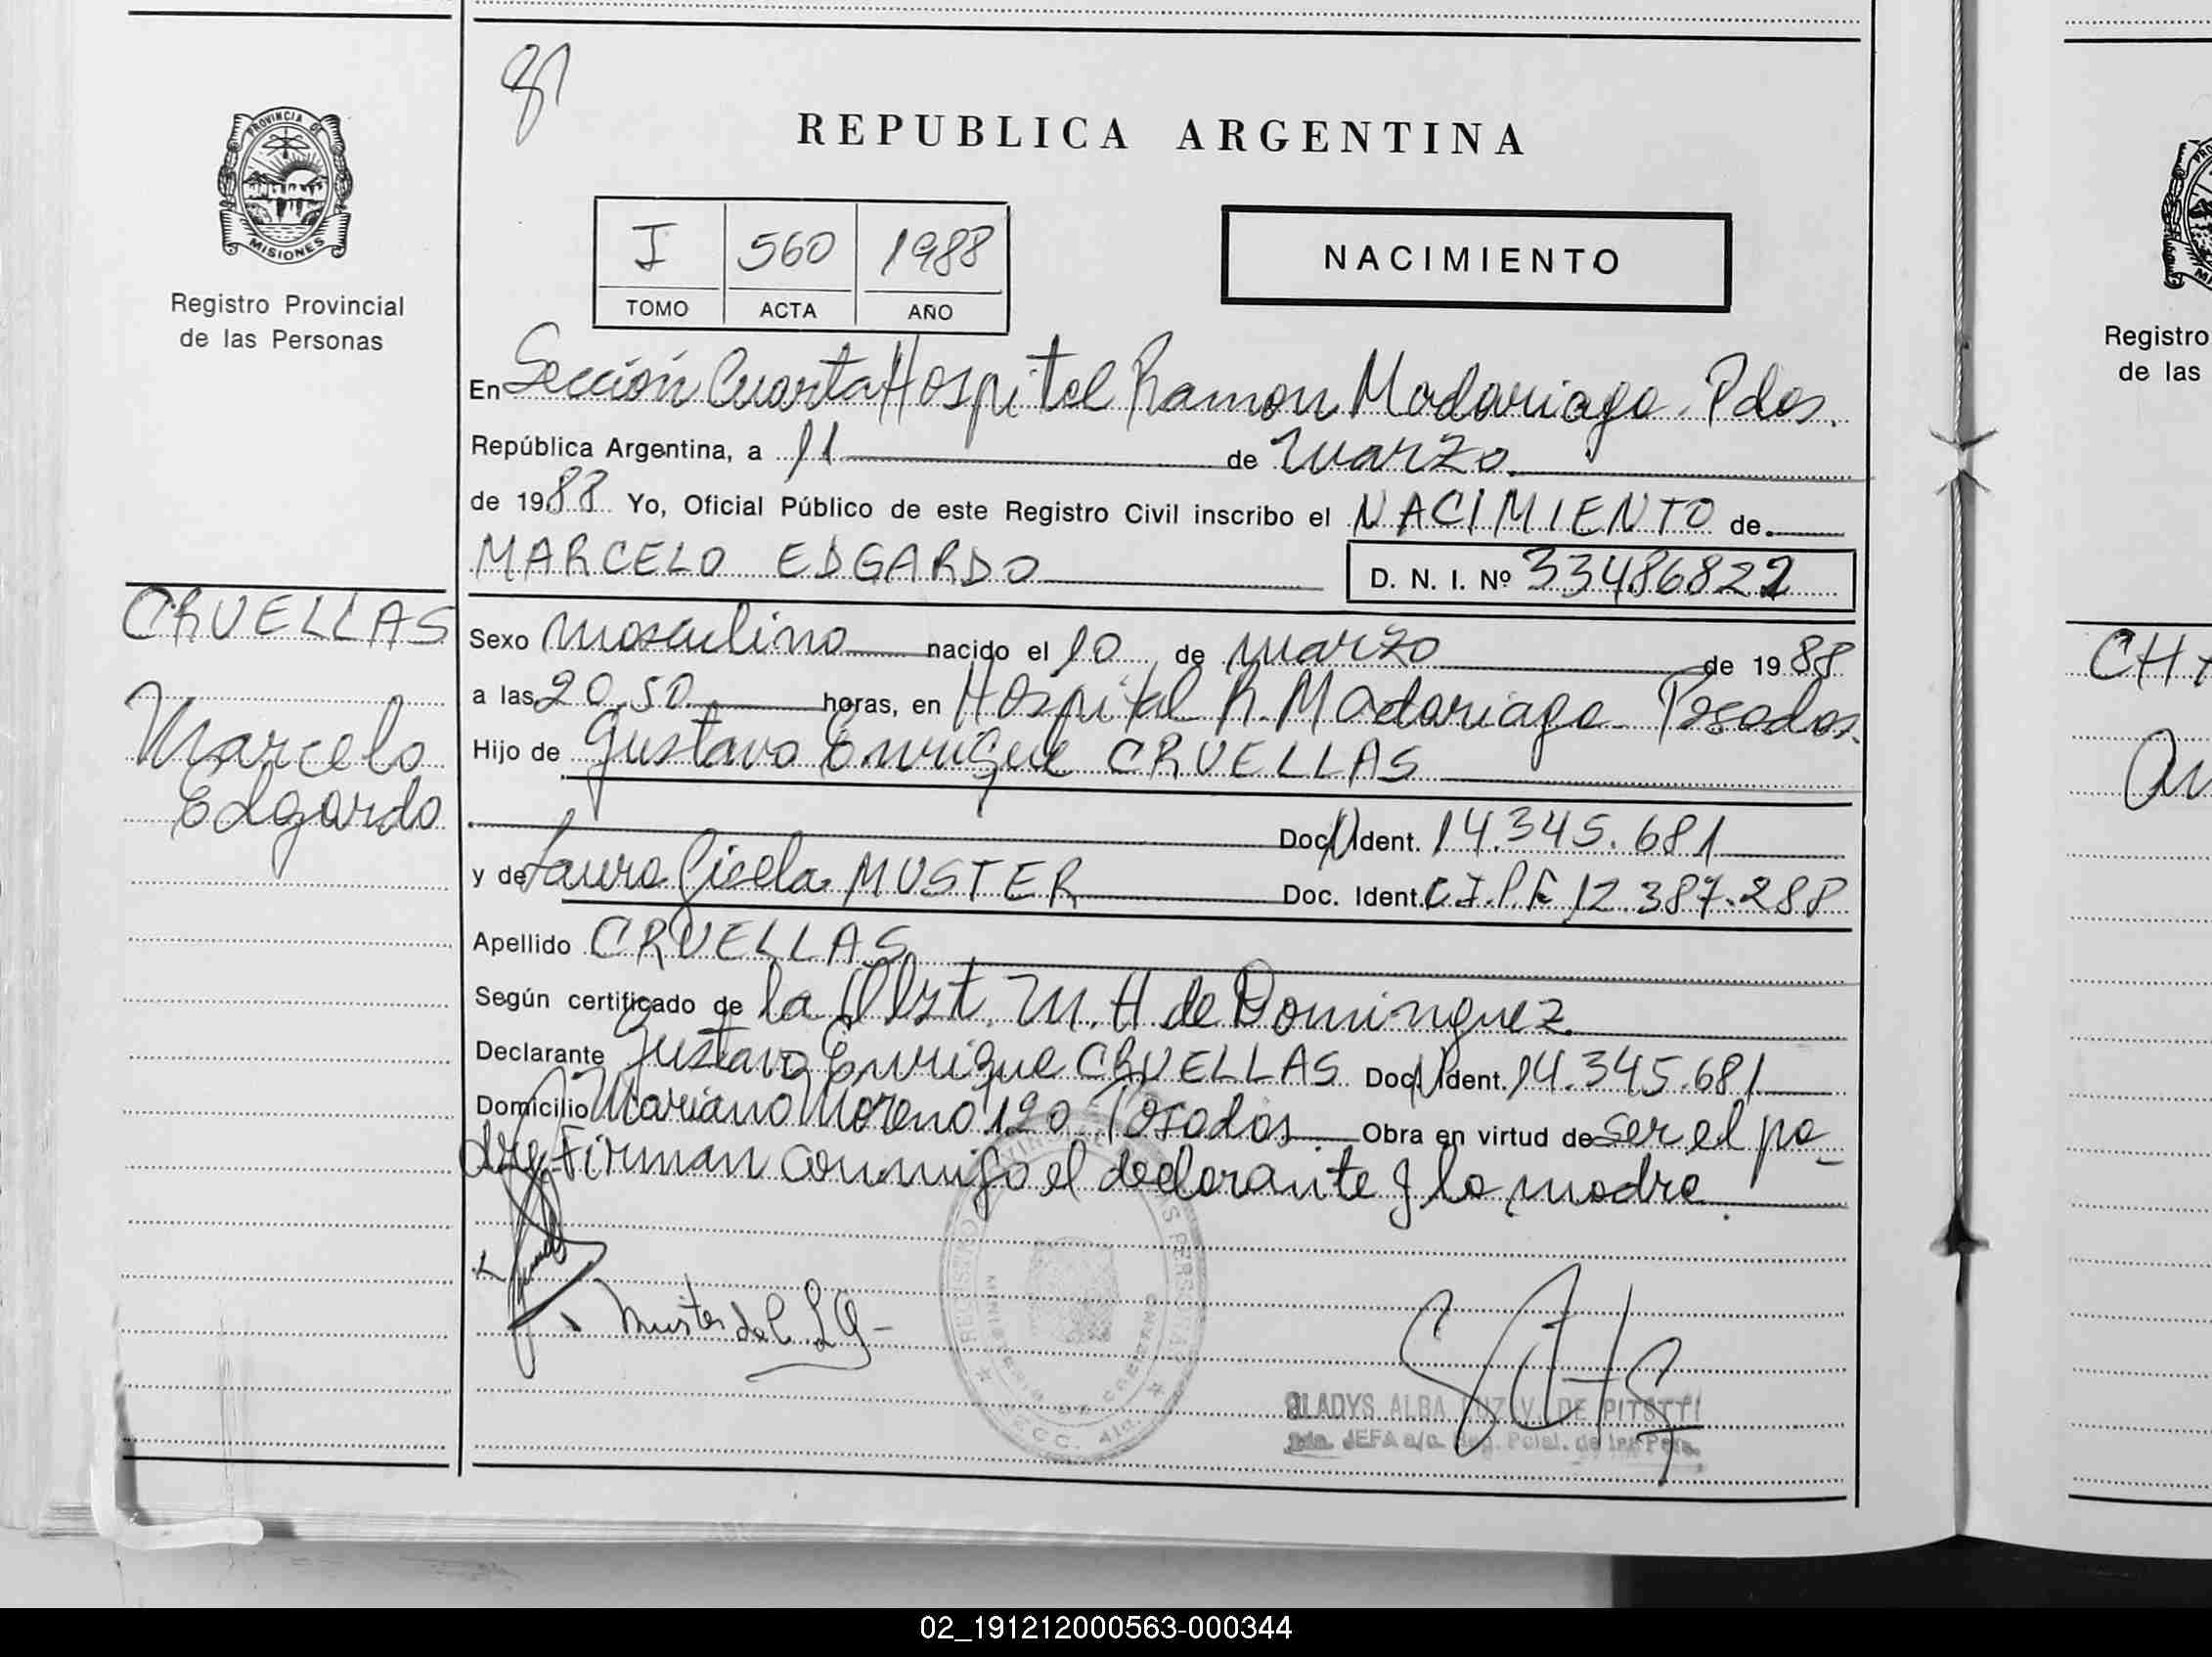 81
REPUBLICA ARGENTINA
PROVINCIA DE
MISIONES
Registro Provincial
de las Personas
I 560 1988
TOMO ACTA AÑO
NACIMIENTO
En Sección Cuarta Hospital Ramon Madariaga. Pdas.
República Argentina, a 11 de marzo
de 1988 Yo, Oficial Público de este Registro Civil inscribo el NACIMIENTO de
MARCELO EDGARDO
D. N. I. Nº 33486822
CRUELLAS
Marcelo
Edgardo
Sexo masculino nacido el 10 de marzo de 1988
a las 20,50 horas, en Hospital R. Madariaga Posadas.
Hijo de Gustavo Enrique CRUELLAS
Doc. Ident. 14.345.681
y de Laura Gisela MUSTER Doc. Ident. C.I.P.F. 12.387.288
Apellido CRUELLAS
Según certificado de la Obst. M. H de Dominguez
Declarante Gustavo Enrique CRUELLAS Doc. Ident. 14.345.681
Domicilio Mariano Moreno 120 Posadas Obra en virtud de ser el pa-
dre. Firman conmigo el declarante y la madre.
Muster de C LG-
GLADYS ALBA LUZ V. DE
JEFA a/c. Reg. Pcial. de las Pers.
Registro
de las
CH
02_191212000563-000344